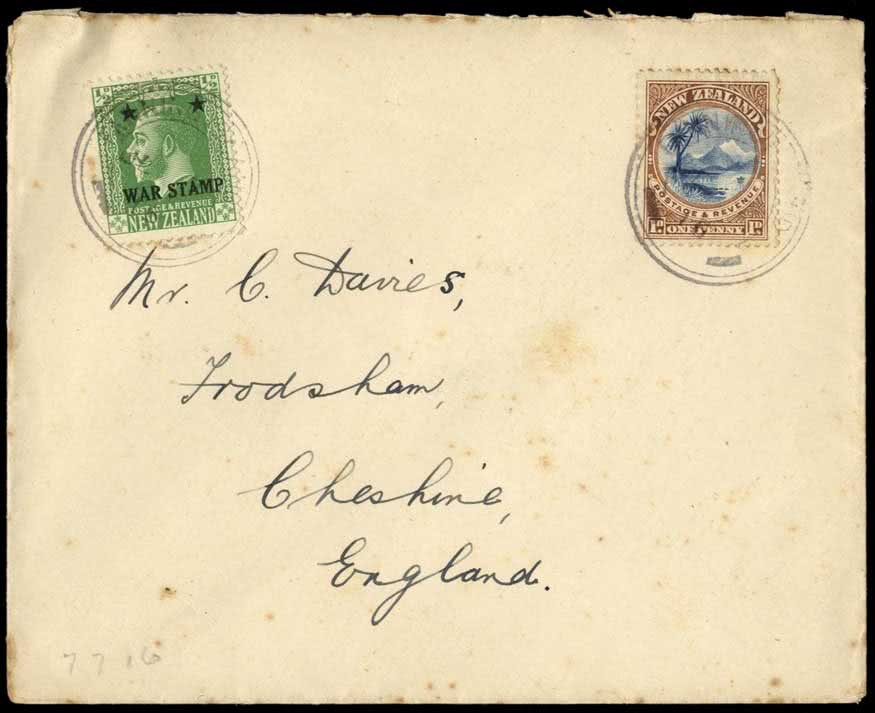 ½ᴅ ½ᴅ
WAR STAMP
POSTAGE & REVENUE
NEW ZEALAND
NEW ZEALAND
POSTAGE & REVENUE
1ᴅ ONE PENNY 1ᴅ
Mr. C. Davies,
Frodsham,
Cheshire,
England.
7 7 16